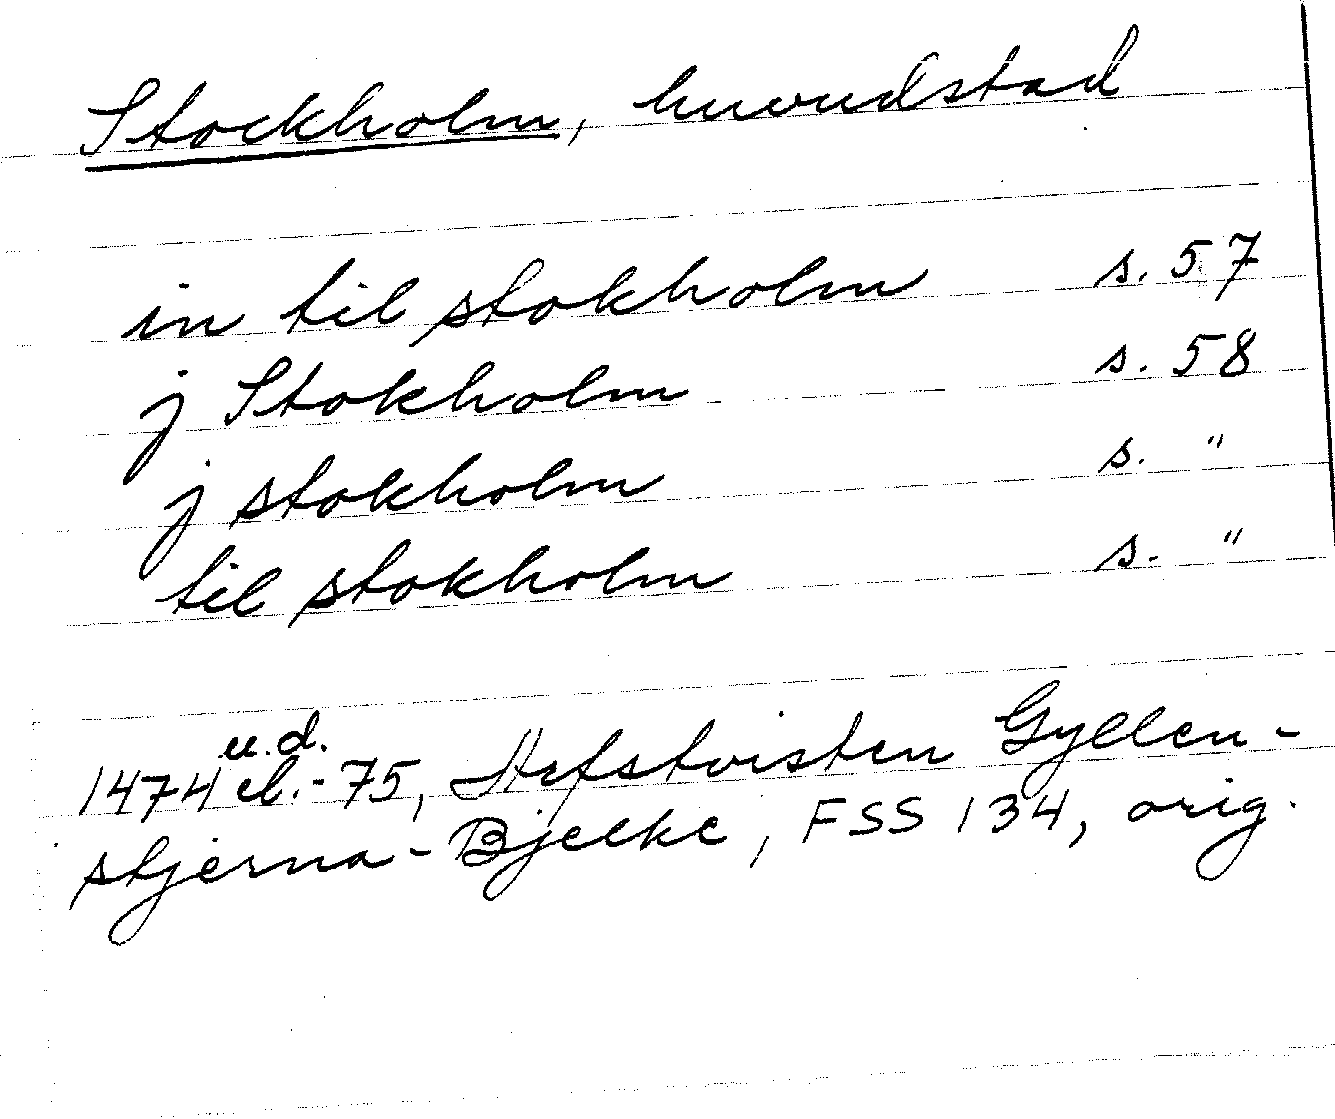 Stockholm, huvudstad
in til stokholm s. 57
j Stokholm s. 58
j stokholm s. "
til stokholm s. "
u.d.
1474 el.-75, Arfstvisten Gyllen-
stjerna-Bjelke, FSS 134, orig.